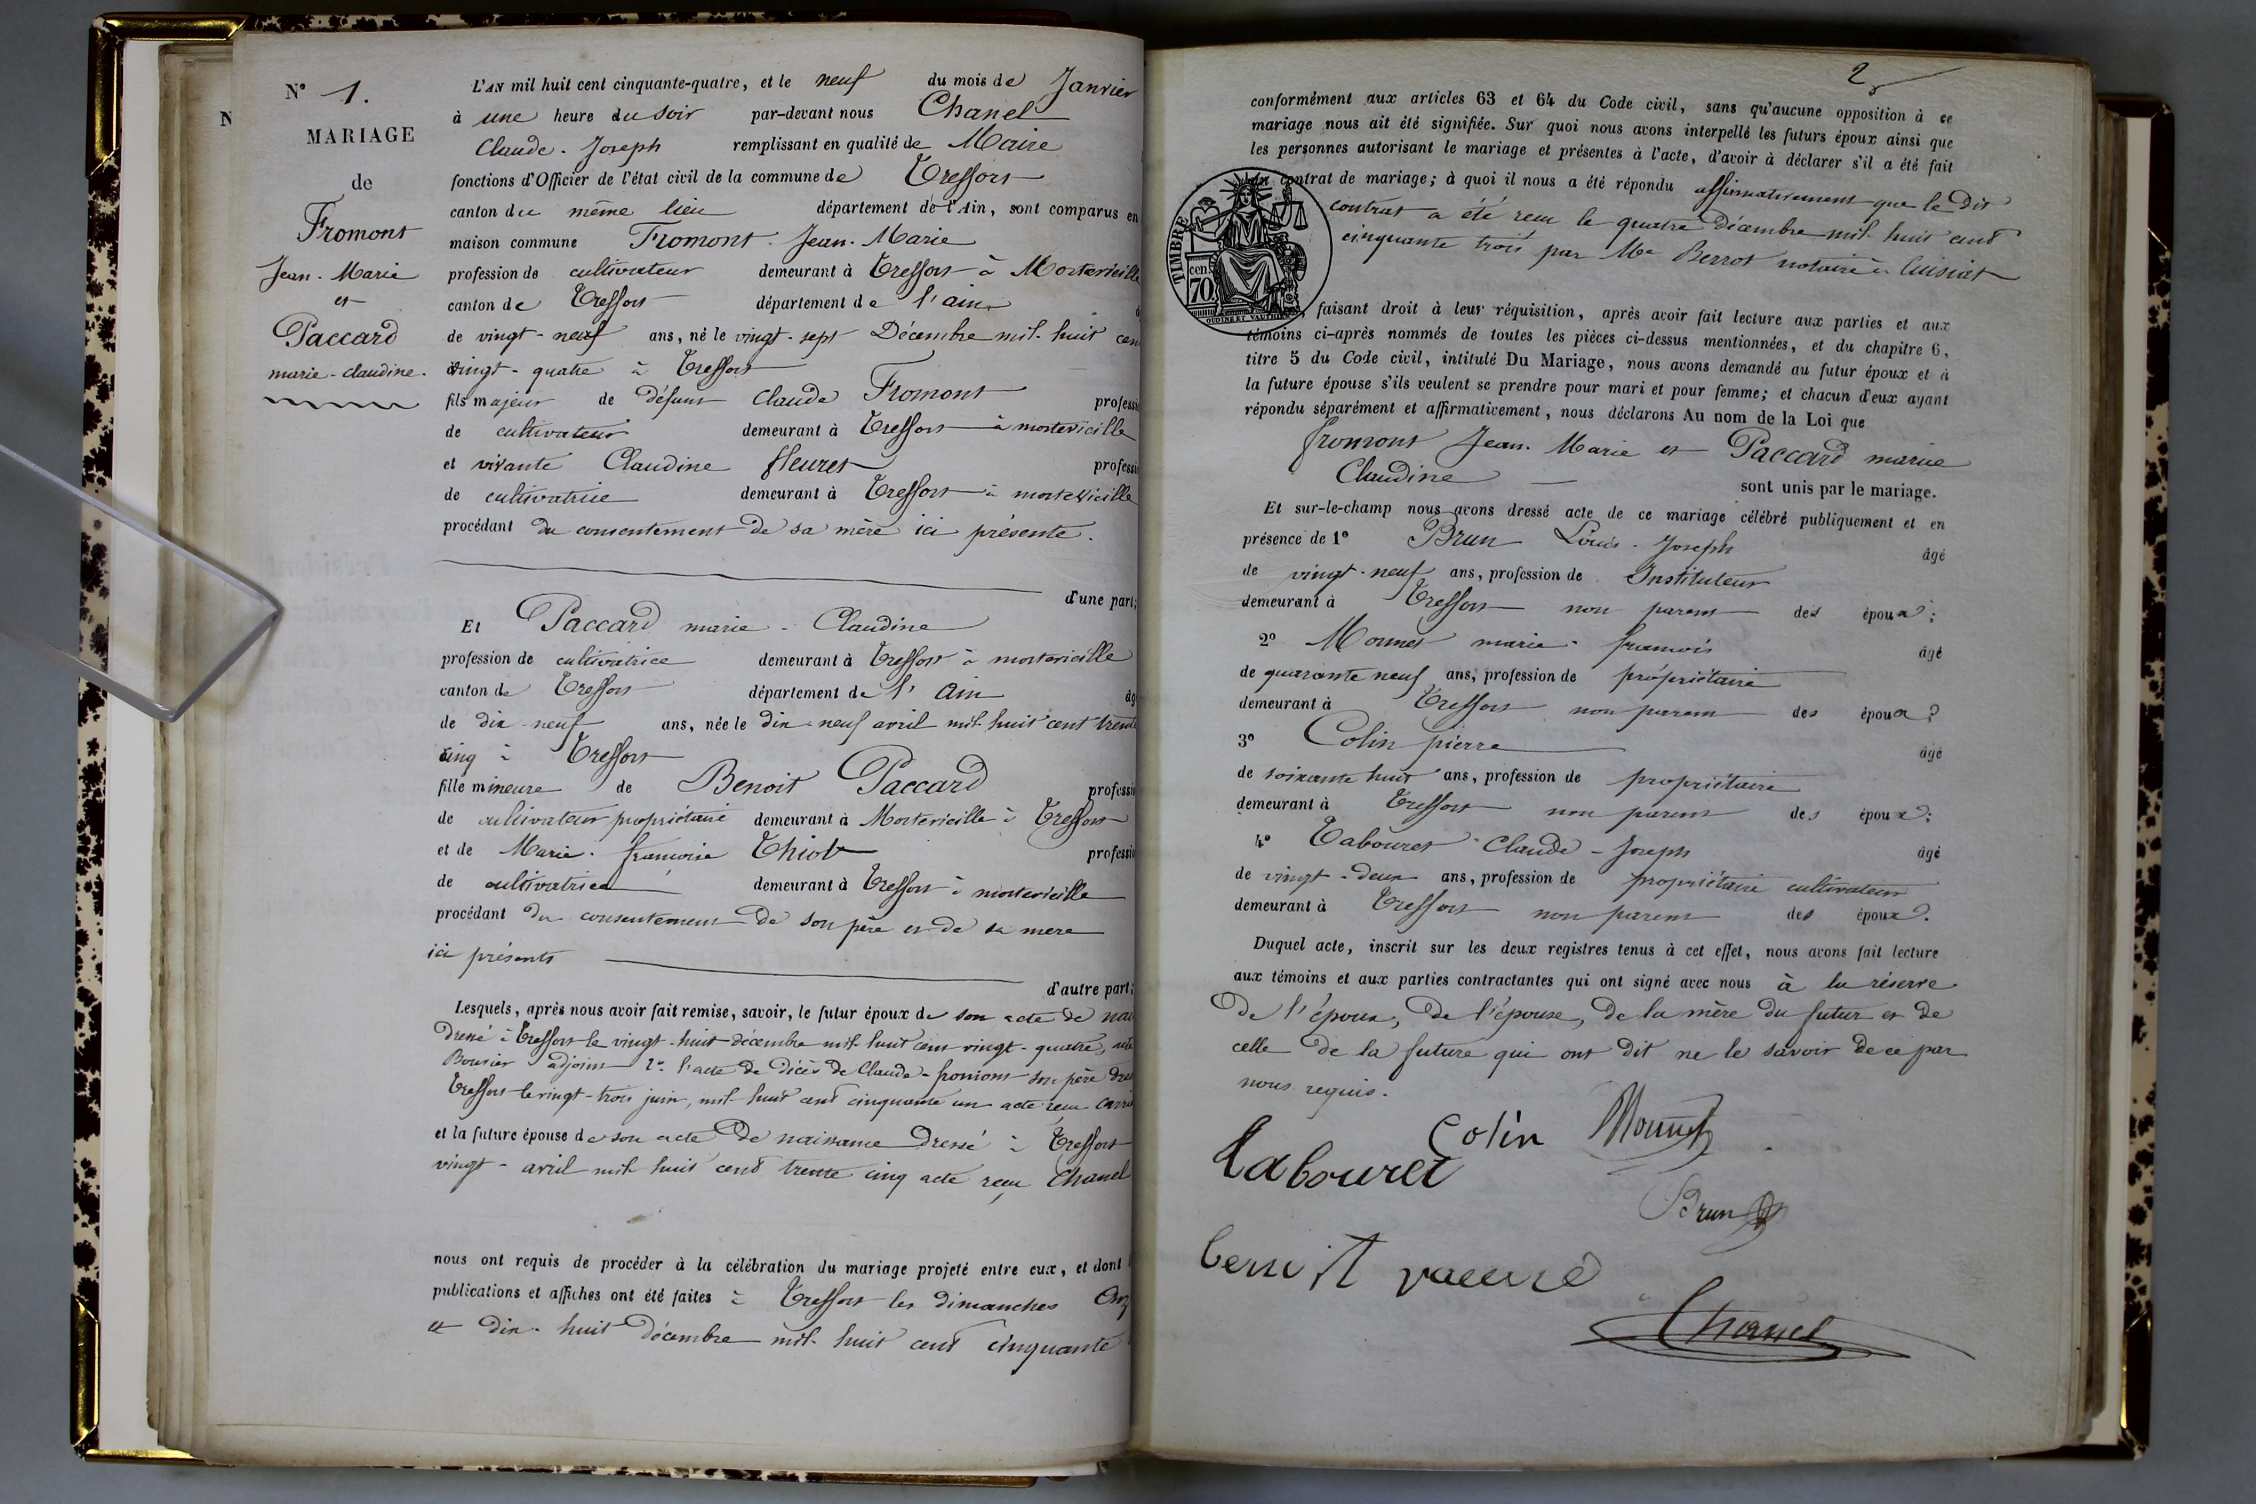 N° 1.
MARIAGE
de
Fromont
Jean-Marie
et
Paccard
marie-claudine.
N
L'AN mil huit cent cinquante-quatre, et le neuf du mois de Janvier
à une heure du soir par-devant nous Chanel
Claude-Joseph remplissant en qualité de Maire
fonctions d'Officier de l'état civil de la commune de Treffort
canton du même lieu département de l'Ain, sont comparus en
maison commune Fromont Jean-Marie
profession de cultivateur demeurant à Treffort à Mortevieille
canton de Treffort département de l'ain
de vingt-neuf ans, né le vingt-sept Décembre mil-huit cen
vingt-quatre à Treffort
fils majeur de défunt Claude Fromont professi
de cultivateur demeurant à Treffort à mortevieille
et vivante Claudine fleuret professi
de cultivatrice demeurant à Treffort à mortevieille
procédant du consentement de sa mère ici présente.
d'une part;
Et Paccard marie-Claudine
profession de cultivatrice demeurant à Treffort à mortevieille
canton de Treffort département de l'Ain âg
de dix-neuf ans, née le dix-neuf avril mil huit cent trente
cinq à Treffort
fille mineure de Benoit Paccard professi
de cultivateur propriétaire demeurant à Mortevieille à Treffort
et de Marie-françoise Thiot professi
de cultivatrice demeurant à Treffort à mortevieille
procédant du consentement de son père et de sa mere
ici présents
d'autre part;
Lesquels, après nous avoir fait remise, savoir, le futur époux de son acte de nai
dressé à Treffort le vingt-huit décembre mil-huit cent vingt-quatre,
Bouvier adjoint 2° l'acte de décès de Claude-fromont son père dres
Treffort le vingt-trois juin, mil-huit cent cinquante un acte reçu
et la future épouse de son acte de naissance dressé à Treffort
vingt-avril mil huit cent trente cinq acte reçu Chanel
nous ont requis de procéder à la célébration du mariage projeté entre eux, et dont
publications et affiches ont été faites à Treffort les dimanches Onz
et dix-huit décembre mil-huit cent cinquante
2
conformément aux articles 63 et 64 du Code civil, sans qu'aucune opposition à ce
mariage nous ait été signifiée. Sur quoi nous avons interpellé les futurs époux ainsi que
les personnes autorisant le mariage et présentes à l'acte, d'avoir à déclarer s'il a été fait
un contrat de mariage; à quoi il nous a été répondu affirmativement que le dit
contrat a été reçu le quatre décembre mil-huit cent
cinquante trois par Me Berrot notaire à Cuisiat
TIMBRE
cen.
70.
OUDINÉ ET VAUTHIER
faisant droit à leur réquisition, après avoir fait lecture aux parties et aux
témoins ci-après nommés de toutes les pièces ci-dessus mentionnées, et du chapitre 6,
titre 5 du Code civil, intitulé Du Mariage, nous avons demandé au futur époux et à
la future épouse s'ils veulent se prendre pour mari et pour femme; et chacun d'eux ayant
répondu séparément et affirmativement, nous déclarons Au nom de la Loi que
fromont Jean-Marie et Paccard marie
Claudine sont unis par le mariage.
Et sur-le-champ nous avons dressé acte de ce mariage célébré publiquement et en
présence de 1° Brun Louis-Joseph âgé
de vingt-neuf ans, profession de Instituteur
demeurant à Treffort non parent des époux;
2° Monnet marie-francois âgé
de quarante neuf ans, profession de propriétaire
demeurant à Treffort non parent des époux;
3° Colin pierre âgé
de soixante huit ans, profession de propriétaire
demeurant à Treffort non parent des époux;
4° Tabouret Claude-Joseph âgé
de vingt-deux ans, profession de propriétaire cultivateur
demeurant à Treffort non parent des époux.
Duquel acte, inscrit sur les deux registres tenus à cet effet, nous avons fait lecture
aux témoins et aux parties contractantes qui ont signé avec nous à la réserve
de l'époux, de l'épouse, de la mère du futur et de
celle de la future qui ont dit ne le savoir de ce par
nous requis.
Colin Monnet
Tabouret
Brun
benoit paccard
Chanel